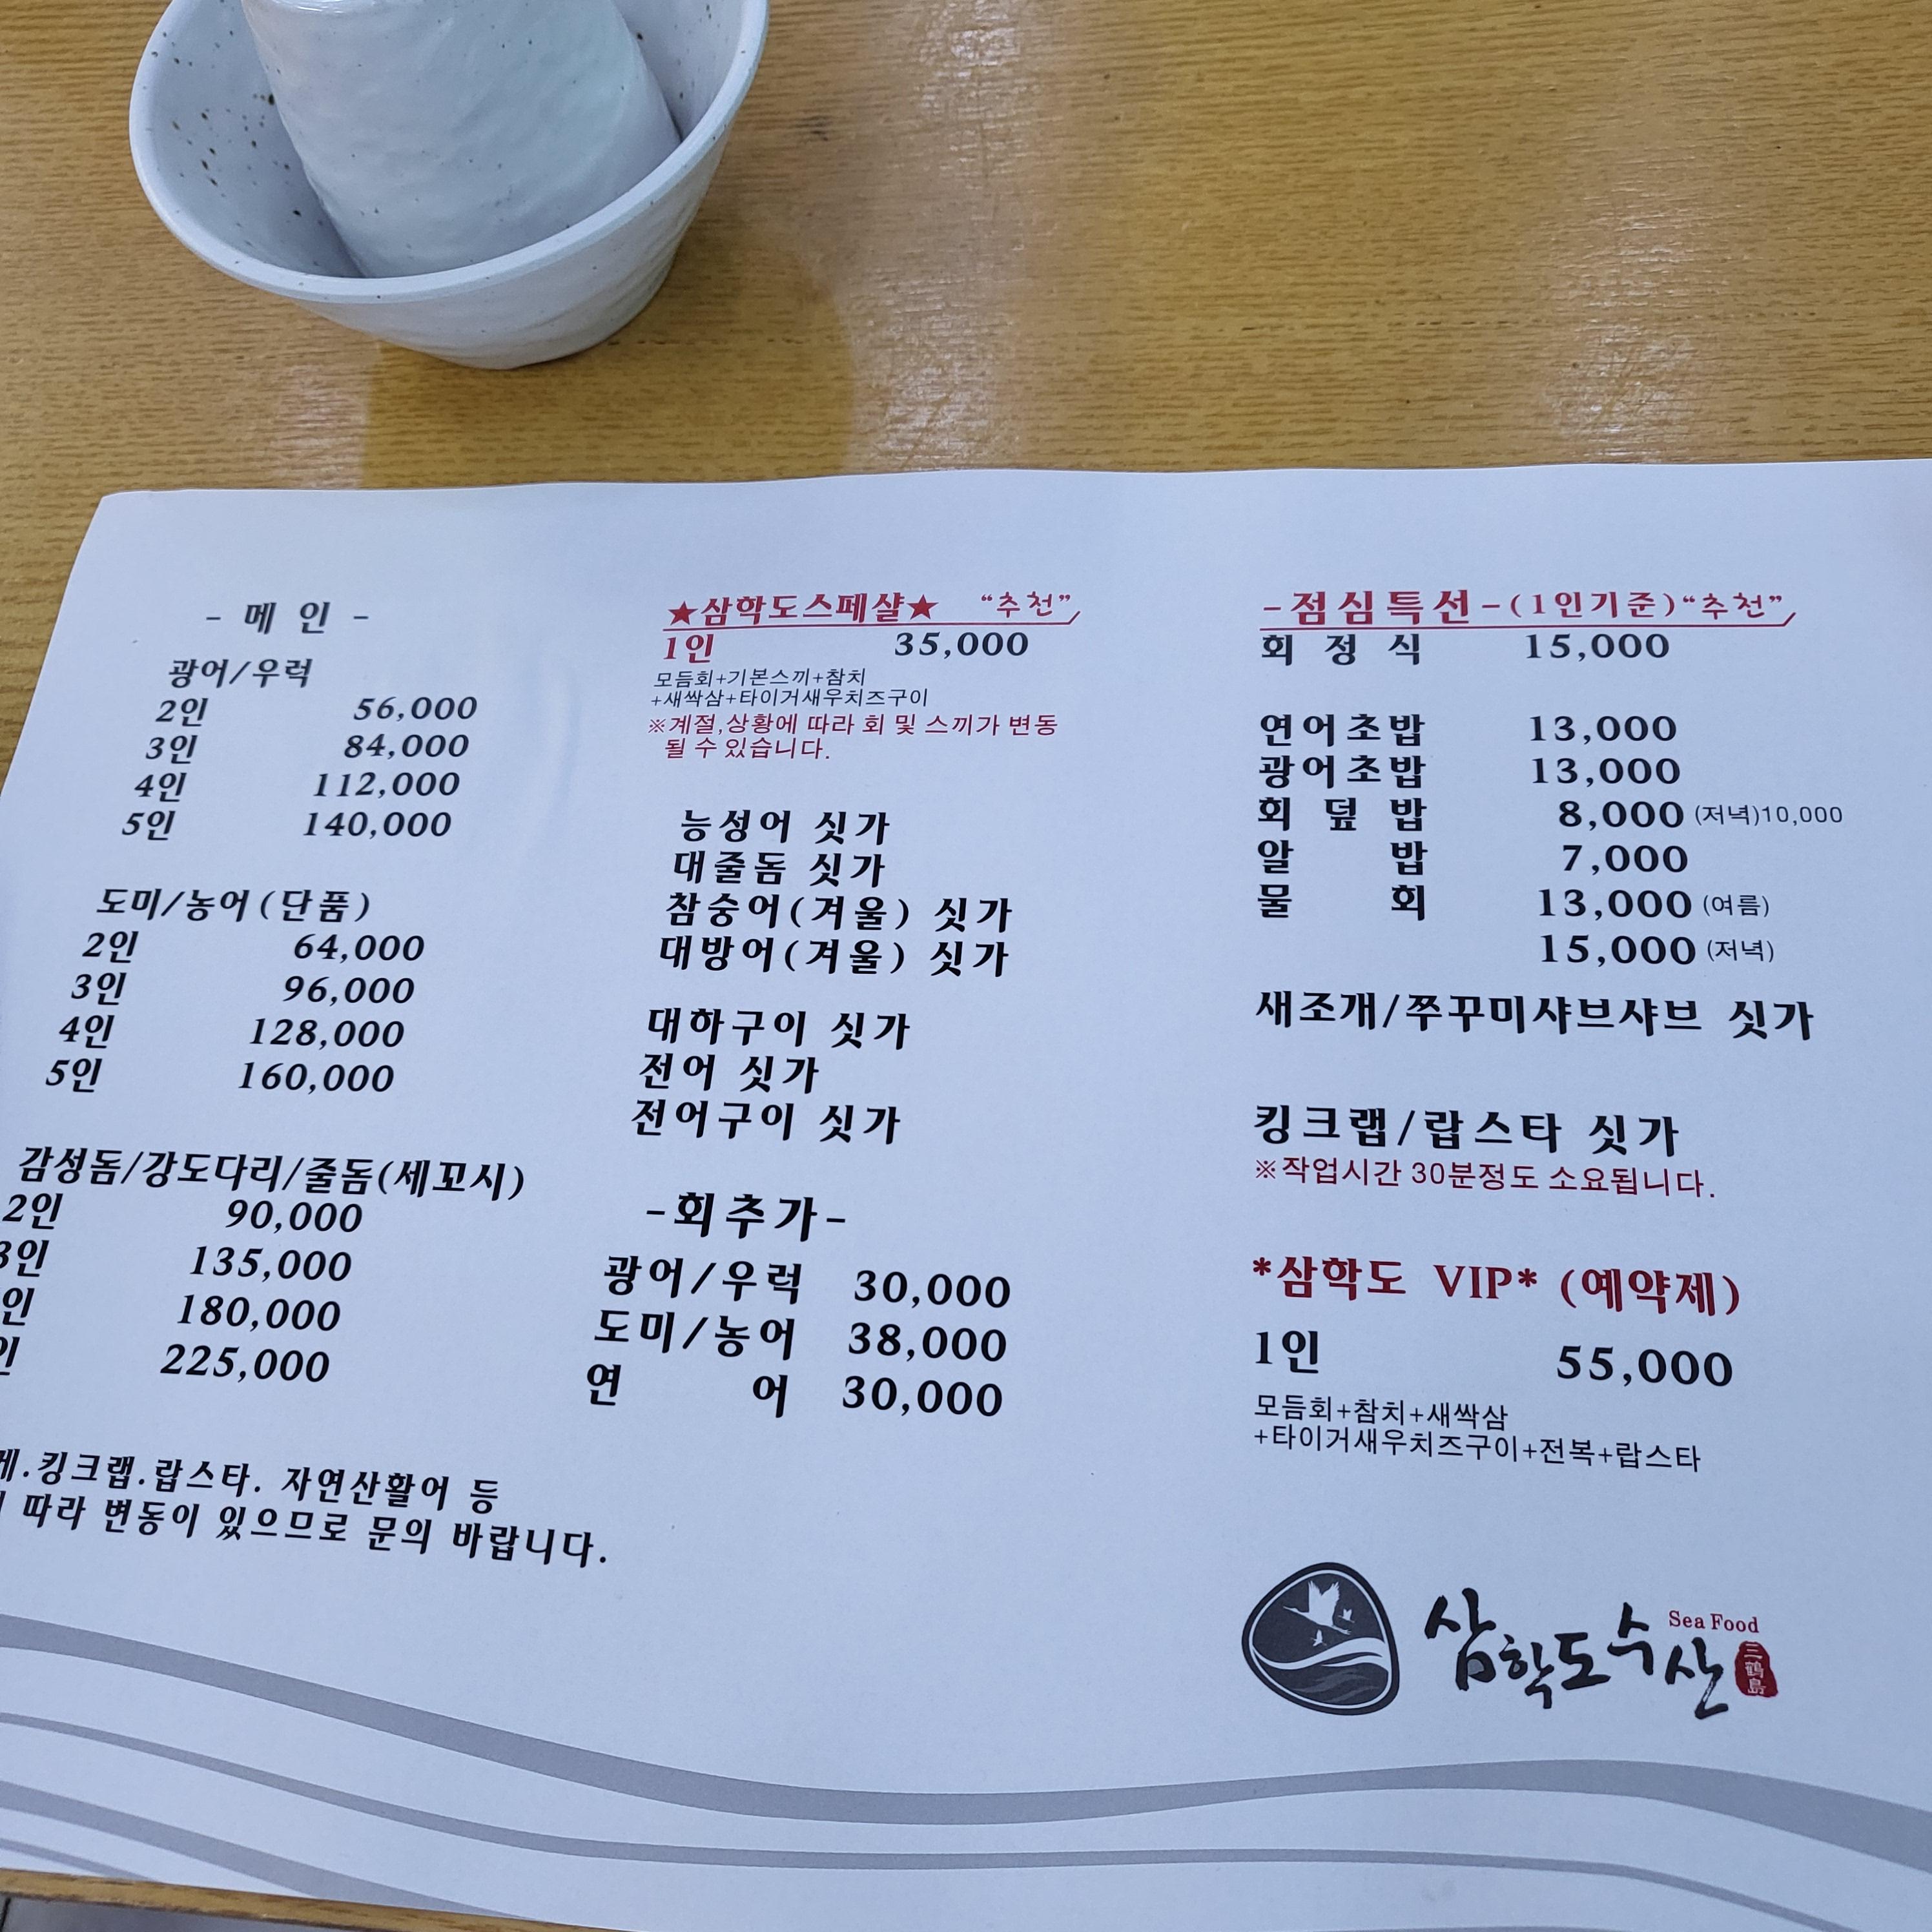 - 메 인 -
광어/우럭
2인 56,000
3인 84,000
4인 112,000
5인 140,000
도미/농어(단품)
2인 64,000
3인 96,000
4인 128,000
5인 160,000
감성돔/강도다리/줄돔(세꼬시)
2인 90,000
3인 135,000
인 180,000
인 225,000
.킹크랩.랍스타. 자연산활어 등
따라 변동이 있으므로 문의 바랍니다.
★삼학도스페샬★ “추천”
1인 35,000
모듬회+기본스끼+참치
+새싹삼+타이거새우치즈구이
※계절,상황에 따라 회 및 스끼가 변동
될 수 있습니다.
능성어 싯가
대줄돔 싯가
참숭어(겨울) 싯가
대방어(겨울) 싯가
대하구이 싯가
전어 싯가
전어구이 싯가
-회추가-
광어/우럭 30,000
도미/농어 38,000
연 어 30,000
-점심특선-(1인기준)“추천”
회 정 식 15,000
연어초밥 13,000
광어초밥 13,000
회 덮 밥 8,000 (저녁)10,000
알 밥 7,000
물 회 13,000 (여름)
15,000 (저녁)
새조개/쭈꾸미샤브샤브 싯가
킹크랩/랍스타 싯가
※작업시간 30분정도 소요됩니다.
*삼학도 VIP* (예약제)
1인 55,000
모듬회+참치+새싹삼
+타이거새우치즈구이+전복+랍스타
삼학도수산
Sea Food
三鶴島